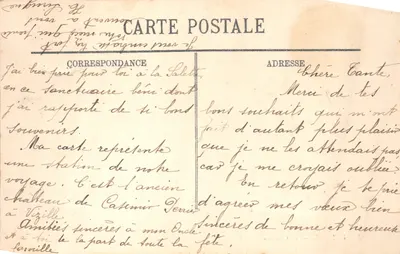 CARTE POSTALE
CORRESPONDANCE
ADRESSE
Chère Tante,
Merci de tes
bons souhaits qui m'ont
fait d'autant plus plaisir
que je ne les attendais pas
car je me croyais oubliée.
En retour je te prie
d'agréer mes vœux bien
sincères de bonne et heureuse
fête.
J'ai bien prié pour toi à la Salette
en ce sanctuaire béni dont
j'ai rapporté de si bons
souvenirs.
Ma carte représente
une station de notre
voyage. C'est l'ancien
château de Casimir Perier
à Vizille
Amitiés sincères à mon Oncle
et à toi de la part de toute la
famille
Je vous embrasse bien fort